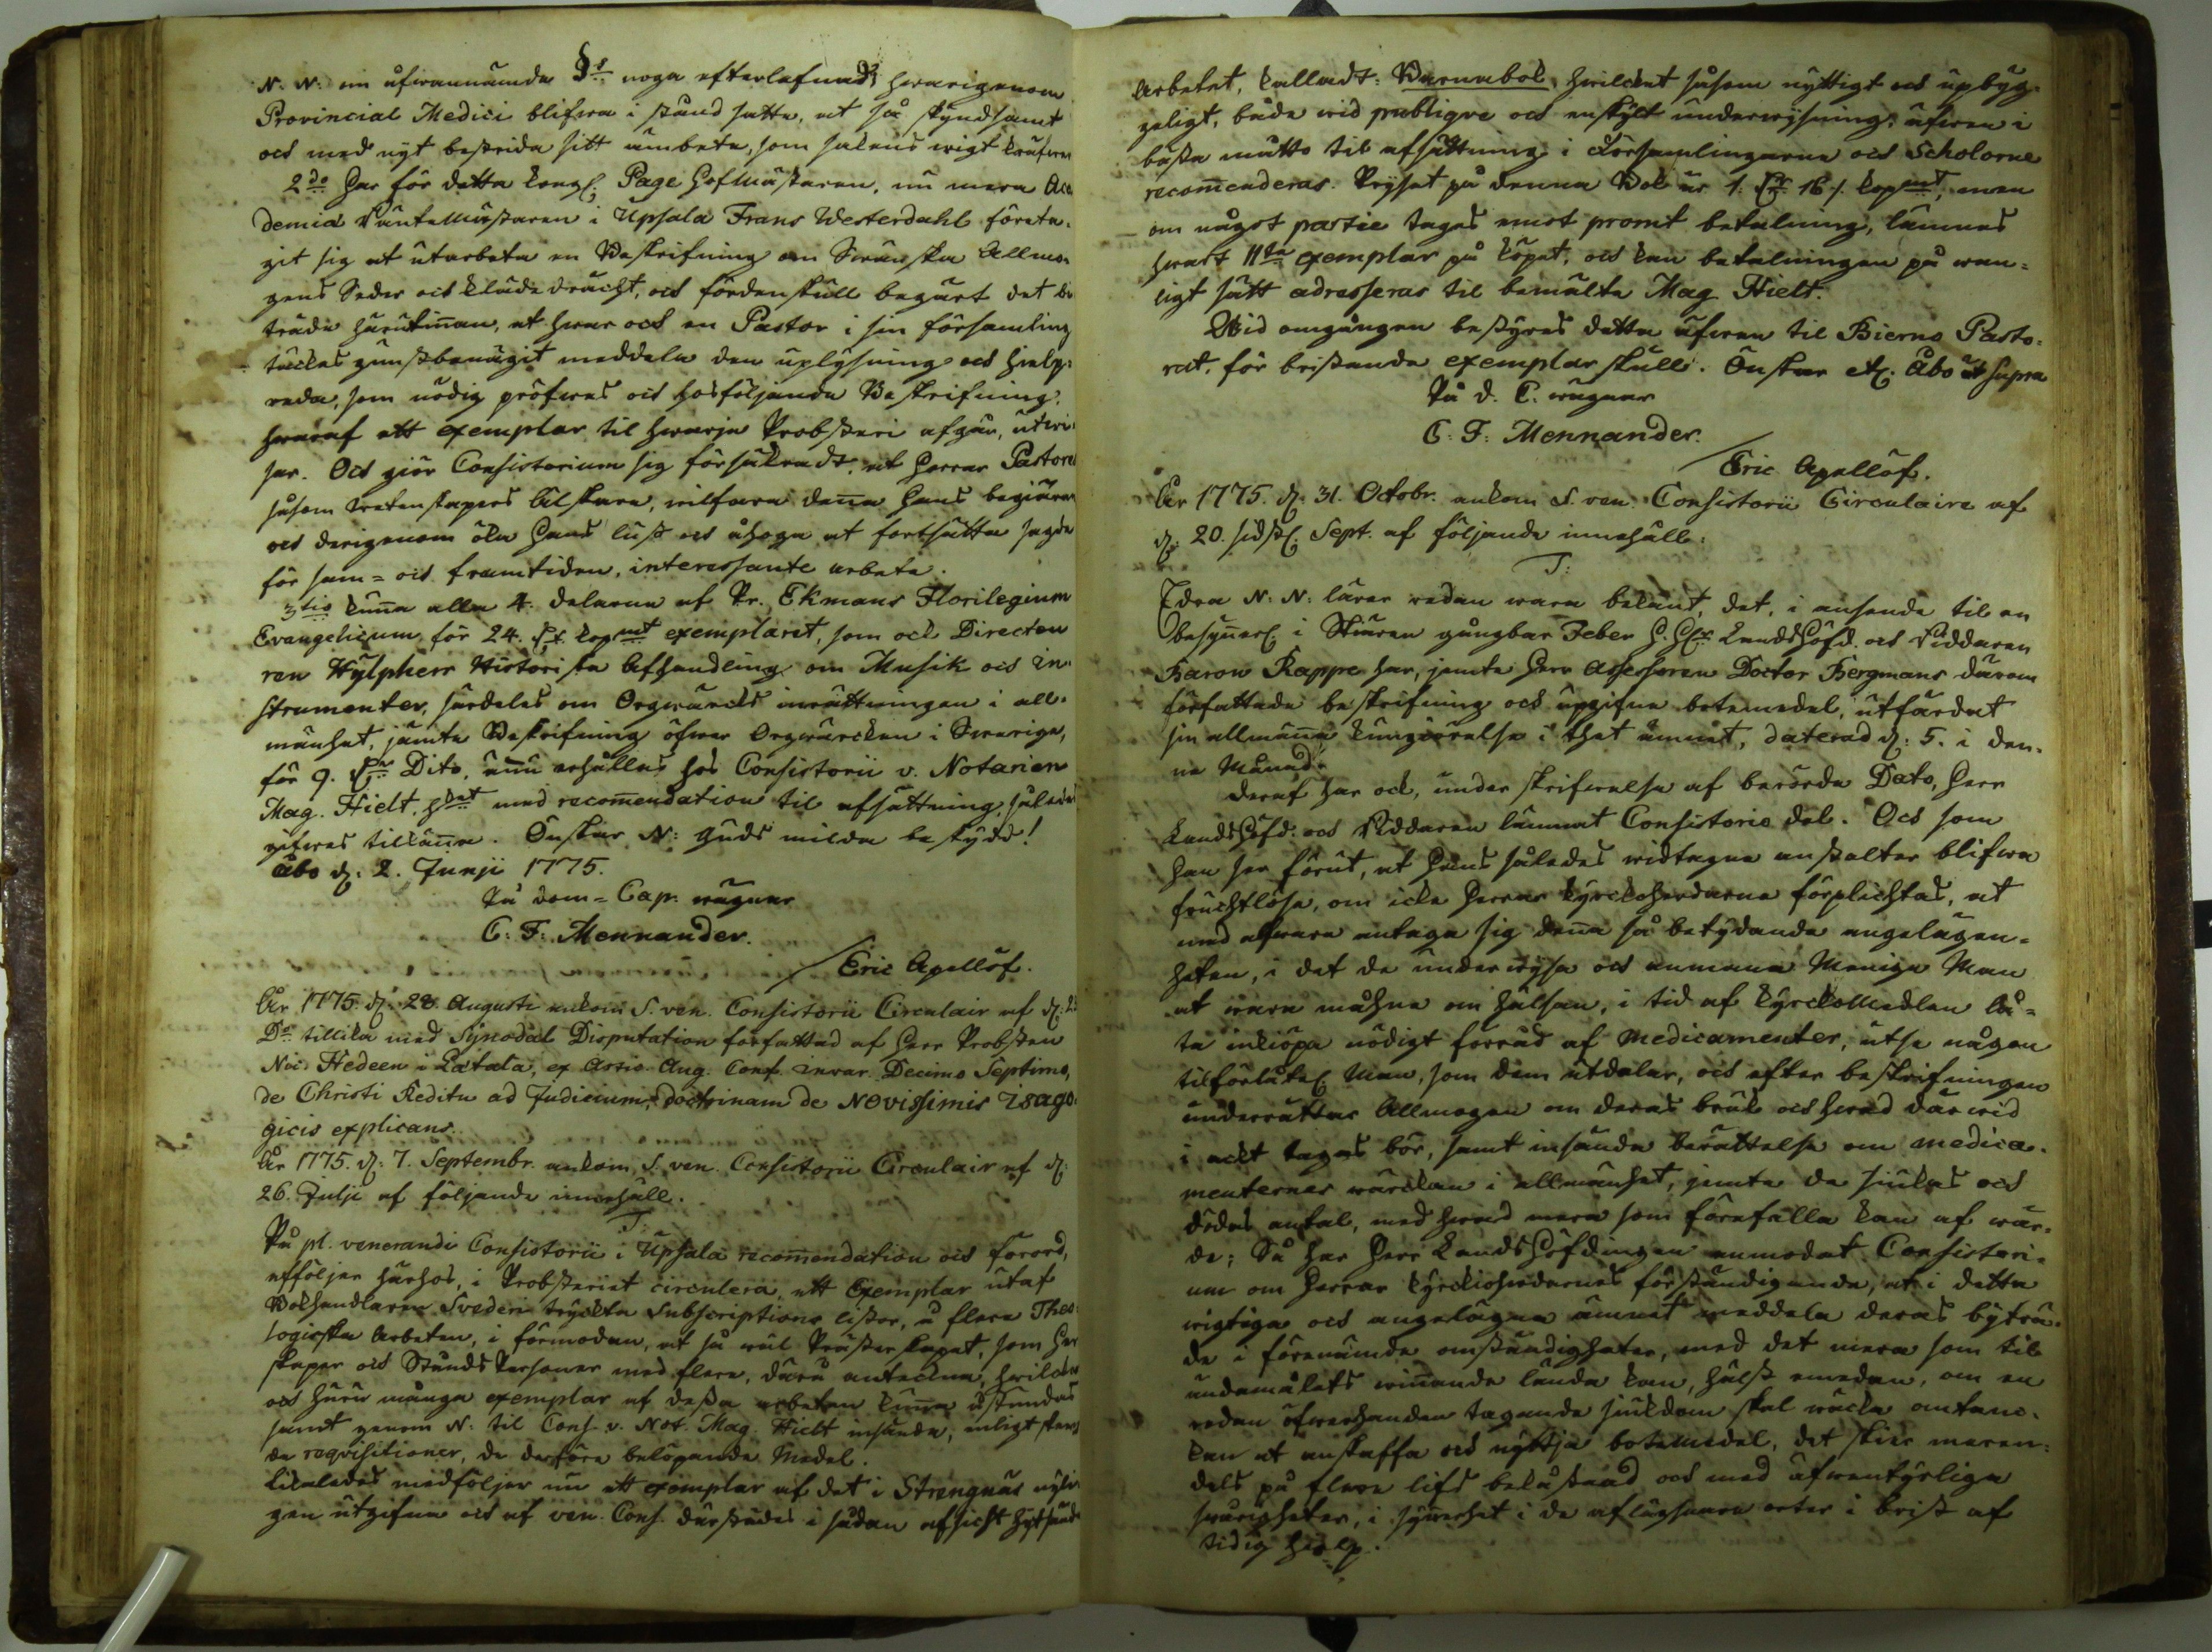 N. N: en åfwannämnde §s noga efterlefnad, hwarigenom
Provincial Medici blifwa i stånd satte, at så skyndsamt
och med nyt bestrida sitt ämbete, som sakens wigt kräfwer
2do Har för detta Kongl. Page Hofmästaren, nu mera Aca
demiæ Räntemästaren i Upsala Frans Westerdahl företa-
git sig at utarbeta en Beskrifning om Swänska Allmo-
gens Seder och klädedrächt, och fördenskull begärt det bi
träde härutinnan, at hwar och en Pastor i sin församling
täckes gunstbenägit meddela den uplysning och hielp-
reda, som nödig pröfwes och hosföljande Beskrifning,
hwaraf ett exemplar til hwarje Probsteri afgår, utwi-
sar. Och giör Consistorium sig försäkradt, at Herrar Pastores
såsom wetenskapers älskare, wilfara denna Hans begiäran
och derigenom öka Hans lust och åhoga at fortsätta sagde
för sam- och framtiden, interessante arbete.
3tio kunna alla 4. delarne af Pr. Ekmans Florilegium
Evangelicum för 24. Dr. kopmt exemplaret, som ock Directeu
ren Hylphers Historiska Afhandling om Musik och in-
strumenter, särdeles om Orgwärcks inrättningen i all-
mänhet, jämte Beskrifning öfwer Orgwärcken i Swerige,
för 9. Dr Dito, ännu erhållas hos Consistorii v. Notarien
Mag. Hielt, hwilket med recommendation til afsättning, således
gifwes tillkänna. Önskar N: Guds milda beskydd!
Åbo d. 2. Junji 1775.
På Dom-Cap. wägnar
C: F: Mennander.
/ Eric Apellöf.
År 1775. d. 28. Augusti ankom S. ven. Consistorii Circulair af d. 2
Do tillika med Synodal Disputation författad af Herr Probsten
Nic. Hedeen i Latala, ex Artic. Aug. Conf. invar. Decimo Septimo,
de Christi Reditu ad Judicium, doctrinam de Novissimis Isago-
gicis explicans.
År 1775. d. 7. Septembr. ankom S. ven. Consistorii Circulair af d.
26. Julji af följande innehåll.
T:
På pl. venerandi Consistorii i Upsala recommendation och förord,
efföljer härhos, i Probsteriet circulera, ett Exemplar utaf
Bokhandlaren Svederi tryckta Subscriptions listor, å flera Theo-
logiska Arbeten, i förmodan, at så wäl Prästerskapet, som Her
skaper och Stånds Personer med flera, därå anteckna, hwilcka
och huru många exemplar af dessa arbeten kunna åstundas
samt genom N. til Cons. v. Not. Mag. Hielt insända, enligt skeen
de reqvisitioner, de derföre belöpande Medel.
Likaledes medföljer nu ett exemplar af det i Strengnäs nyli-
gen utgifne och af ven. Cons. därstädes i sådan afsicht hitsände
Arbetet, kalladt: Barnabok, hwilcket såsom nyttigt och upbyg-
geligt, både wid publique och enskylt underwysning, äfwen i
bästa måtto til afsättning i Församlingarna och Scholorne
recommenderas. Pryset på denna Bok är 1. Dr 16 /. kopmt, men
om något partie tages emot promt betalning, lämnas
hwart 11te exemplar på köpet, och kan betalningen på wan-
ligt sätt adresseras til bemälte Mag. Hielt.
Wid omgången bestyres detta äfwen til Bierno Pasto-
rat, för bristande exemplar skull. Önskar etc. Åbo ut supra
På D. C. wägnar
C: F: Mennander.
/ Eric Apellöf.
År 1775. d. 31. Octobr. ankom S. ven. Consistorii Circulaire af
d. 20. sidstl. Sept. af följande innehåll:
T:
Edra N. N: lärer redan wara bekant, det, i anseende til en
besynnerl. i Skiären gångbar Feber H. Hr Landshöfd. och Riddaren
Baron Rappe har, jemte Herr Assessoren Doctor Bergmans därom
författade beskrifning och upgifne botemedel, utfärdat
sin allmänna kungiörelse i thet ämnet, daterad d. 5. i den-
ne Månad.
Deraf har och, under skrifwelse af berörde Dato, Herr
Landshöfd. och Riddaren lämnat Consistorio del. Och som
han ser förut, at Hans således widtagne anstalter blifwa
fruchtlöse, om icke Herrar Kyrckoherdarne förplichtas, at
med alfwar antaga sig denna så betydande angelägen-
heten, i det de underwysa och anmana Menige Man
at wara måhne om hälsan, i tid af KyrckoMedlen lå-
ta inkiöpa nödigt förråd af Medicamenter, utse någon
tilförlåtel. Man, som dem utdelar, och efter beskrifningen
underrättar Allmogen om deras bruk och hwad därwid
i ackt tagas bör, samt insända berättelse om medica-
menternes wärckan i allmänhet, jemte de siukas och
dödas antal, med hwad mera som förefalla kan af wär-
de; Så har Herr Landshöfdingen anmodat Consistori-
um om Herrar Kyrckioherdarnes förständigande, at i detta
wigtiga och angelägna ämnet meddela deras byträ-
de i förenämde omständigheter, med det mera som til
ändamålets winnande lända kan, hälst emedan, om en
redan öfwerhanden tagande siukdom skal wäcka omtanc-
kan at anskaffa och nyttja botemedel, det skier meren-
dels på flere lifs bekåstnad och med äfwentyrliga
swårigheter, i synnerhet i de aflägsnare orter i brist af
tidig hielp.